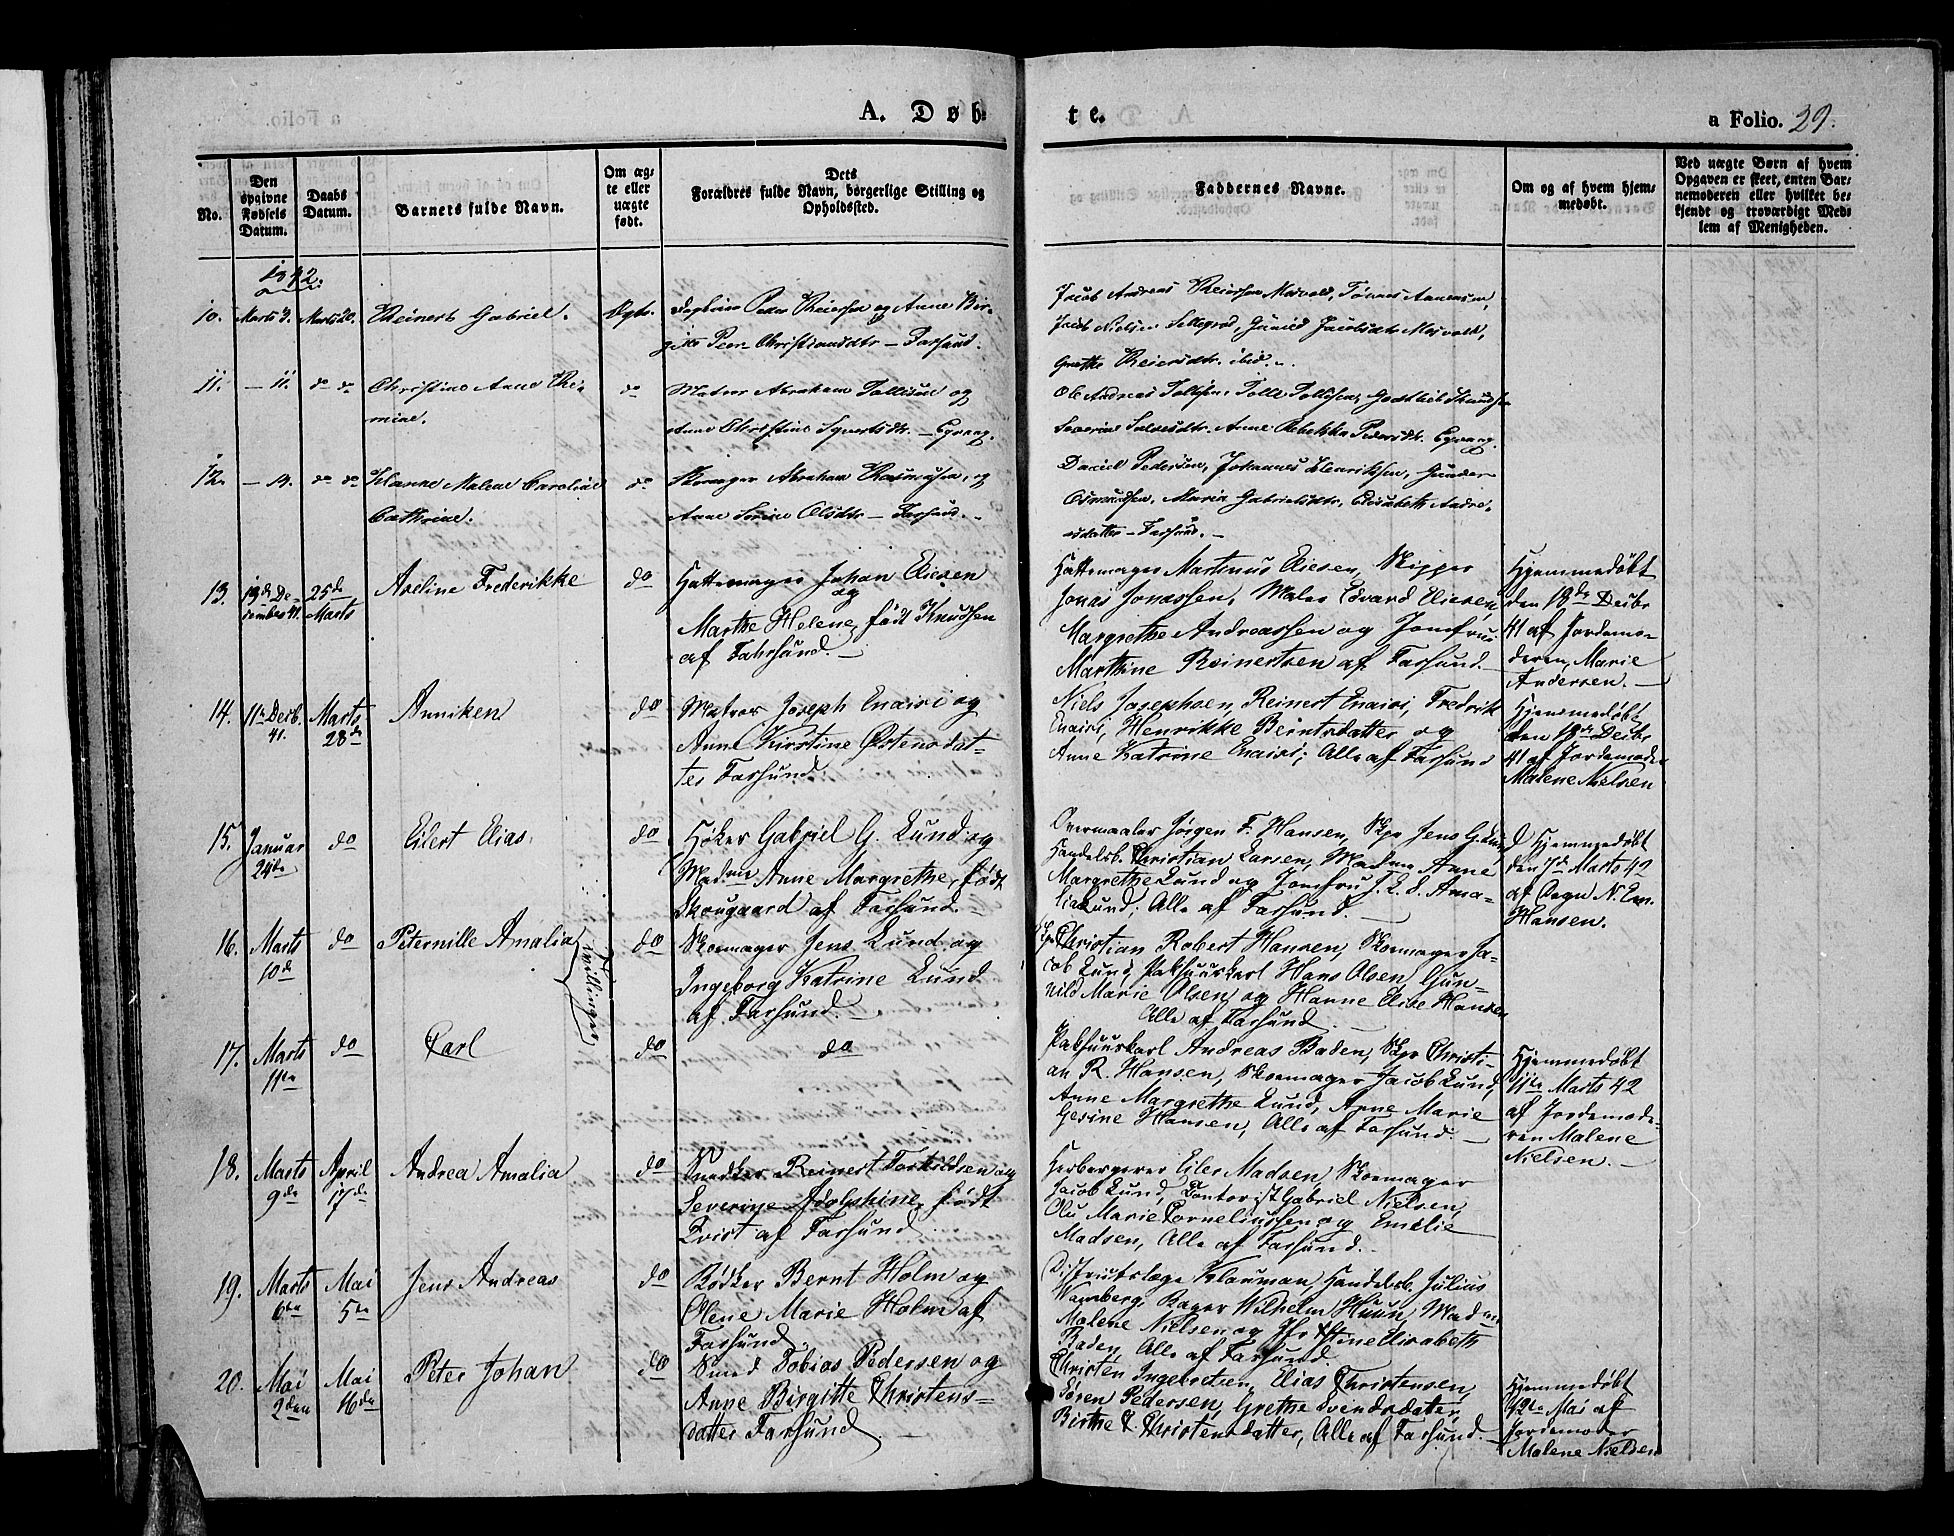 A. Døb-
te.
a Folio. 29.
No.
Den opgivne Fødsels Datum.
Daabs Datum.
Barnets fulde Navn.
Om ægte eller uægte født.
Dets Forældres fulde Navn, borgerlige Stilling og Opholdssted.
Faddernes Navne.
Om og af hvem hjemmedøbt.
Ved uægte Børn af hvem Opgaven er skeet, enten Barnemoderen eller hvilket bekjendt og troværdigt Medlem af Menigheden.
1842.
10. Marts 3. Marts 20. Reinert Gabriel. Ægte.
Peder Reiersen og Anne Bir-
gitte Peer Christiansdtr – Farsund.
Jacob Andreas Reiersen Tønnes
Jacob Nielsen Gunild Jacobsdtr
Grethe Reiersdtr. ibid.
11. – 11. do do Christine Anne The-
mine.
do
Matros Abraham Tollisen og
Anne Christine Syvertsdtr. –
Ole Andreas Tollisen, Tolle Tollisen,
Severine Anne Rebekka Pedersdtr.
12. – 19. do do Hanne Malene Caroline
Cathrine.
do
Skomager Abraham Rasmusen, og
Anne Serine Olsdtr – Farsund. –
Daniel Pedersen, Johannes Henriksen, Gunder
Maria Gabrielsdtr, Elisabeth Andre-
asdatter – Farsund. –
13. 13de De-
cember 41.
25de
Marts
Aveline Frederikke
do
Hattemager Johan Eliesen
og
Marthe Helene, født Knudsen
af Fahrsund. –
Hattemager Martinus Eliesen, Skipper
Jonas Jonassen, Maler Edvard Eliesen,
Margrethe Andreassen og Jomfrue
Marthine Reinertsen af Farsund.
Hjemmedøbt
den 18de Decbr
41 af Jordemo-
deren, Marie
Andersen. –
14. 11te Decb.
41.
Marts
28de
Anniken
do
Matros Joseph Enaisi og
Anne Kirstine Østensdat-
ter Farsund
Niels Josephsen, Reinert Enaisi, Fredrik
Enaisi, Henrikke Berntsdatter og
Anne Katrine Enaisi; Alle af Farsund
Hjemmedøbt
den 18de Decbr
41 af Jordemoder
Malene Nielsen
15. Januar
24de
do
Eilert Elias.
do
Høker Gabriel G. Lund og
Madme Anne Margrethe, født
Skougaard af Farsund. –
Overmaaler Jørgen F. Hansen, Skpr Jens G. Lund,
Handelsb. Christian Larsen, Madme Anne
Margrethe Lund og Jomfru J. E. S. Ama-
lia Lund; Alle af Farsund. –
Hjemmedøbt
den 7de Marts 42
af Organ N. Em.
Hansen.
16. Marts
10de
do
Peternille Amalia
Tvillinger
do
Skoemager Jens Lund og
Ingeborg Katrine Lund
af Farsund. –
Skpr Christian Robert Hansen, Skoemager Ja-
cob Lund, Pakhuuskarl Hans Olsen, Gun-
nild Marie Olsen og Hanne Elise Hansen
Alle af Farsund –
17. Marts
11te
do
Carl
do
do
Pakhuuskarl Andreas Baden, Skpr Christi-
an R. Hansen, Skoemager Jacob Lund,
Anne Margrethe Lund, Anne Marie
Gesine Hansen, Alle af Farsund. –
Hjemmedøbt
11te Marts 42
af Jordemode-
ren Malene
Nielsen. –
18. Marts
9de
April
17de
Andrea Amalia
do
Snedker Reinert Torkildsen og
Severine Adolphine, født
Qvist af Farsund
Herbergerer Eiler Madsen, Skoemager
Jacob Lund, Contorist Gabriel Nielsen,
Olu Marie Corneliussen og Emelie
Madsen, Alle af Farsund. –
19. Marts
6te
Mai
5te
Jens Andreas
do
Bødker Bernt Holm og
Olene Marie Holm af
Farsund
Districtslæge Klouman, Handelsb. Julius
Wamberg, Bager Wilhelm Huun, Madme
Malene Nielsen og Jfr Stine Elisabeth
Baden, Alle af Farsund.
20. Mai
2den
Mai
16de
Peter Johan
do
Smed Tobias Pedersen og
Anne Birgitte Christens-
datter Farsund –
Christen Ingebretsen, Elias Christensen,
Søren Pedersen, Grethe Svendsdatter,
Birthe C Christensdatter, Alle af Farsund. –
Hjemmedøbt
2de Mai af
Jordemoder
Malene Nielsen